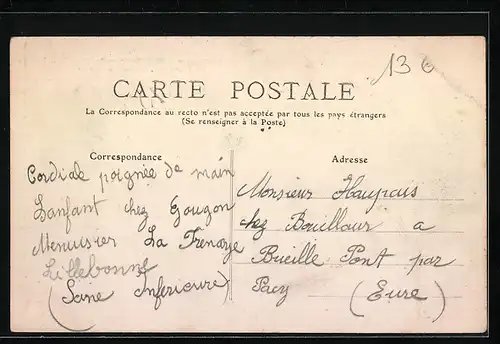 136
CARTE POSTALE
La Correspondance au recto n'est pas acceptée par tous les pays étrangers
(Se renseigner à la Poste)
Correspondance
Cordiale poignée de main
Lanfant chez Gougon
Menuisier La Frenaye
Lillebonne
(Seine Inferieure)
Adresse
Monsieur
chez Bouillour a
Bueille Pont par
Pacy (Eure)